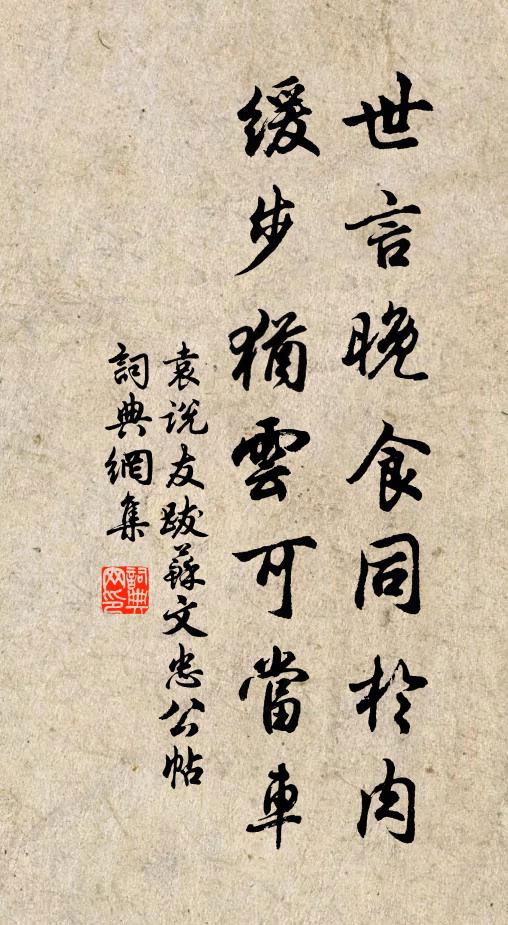 世言晚食同於肉
緩步猶雲可當車
袁说友跋蘇文忠公帖
詞典網集
詞典網印